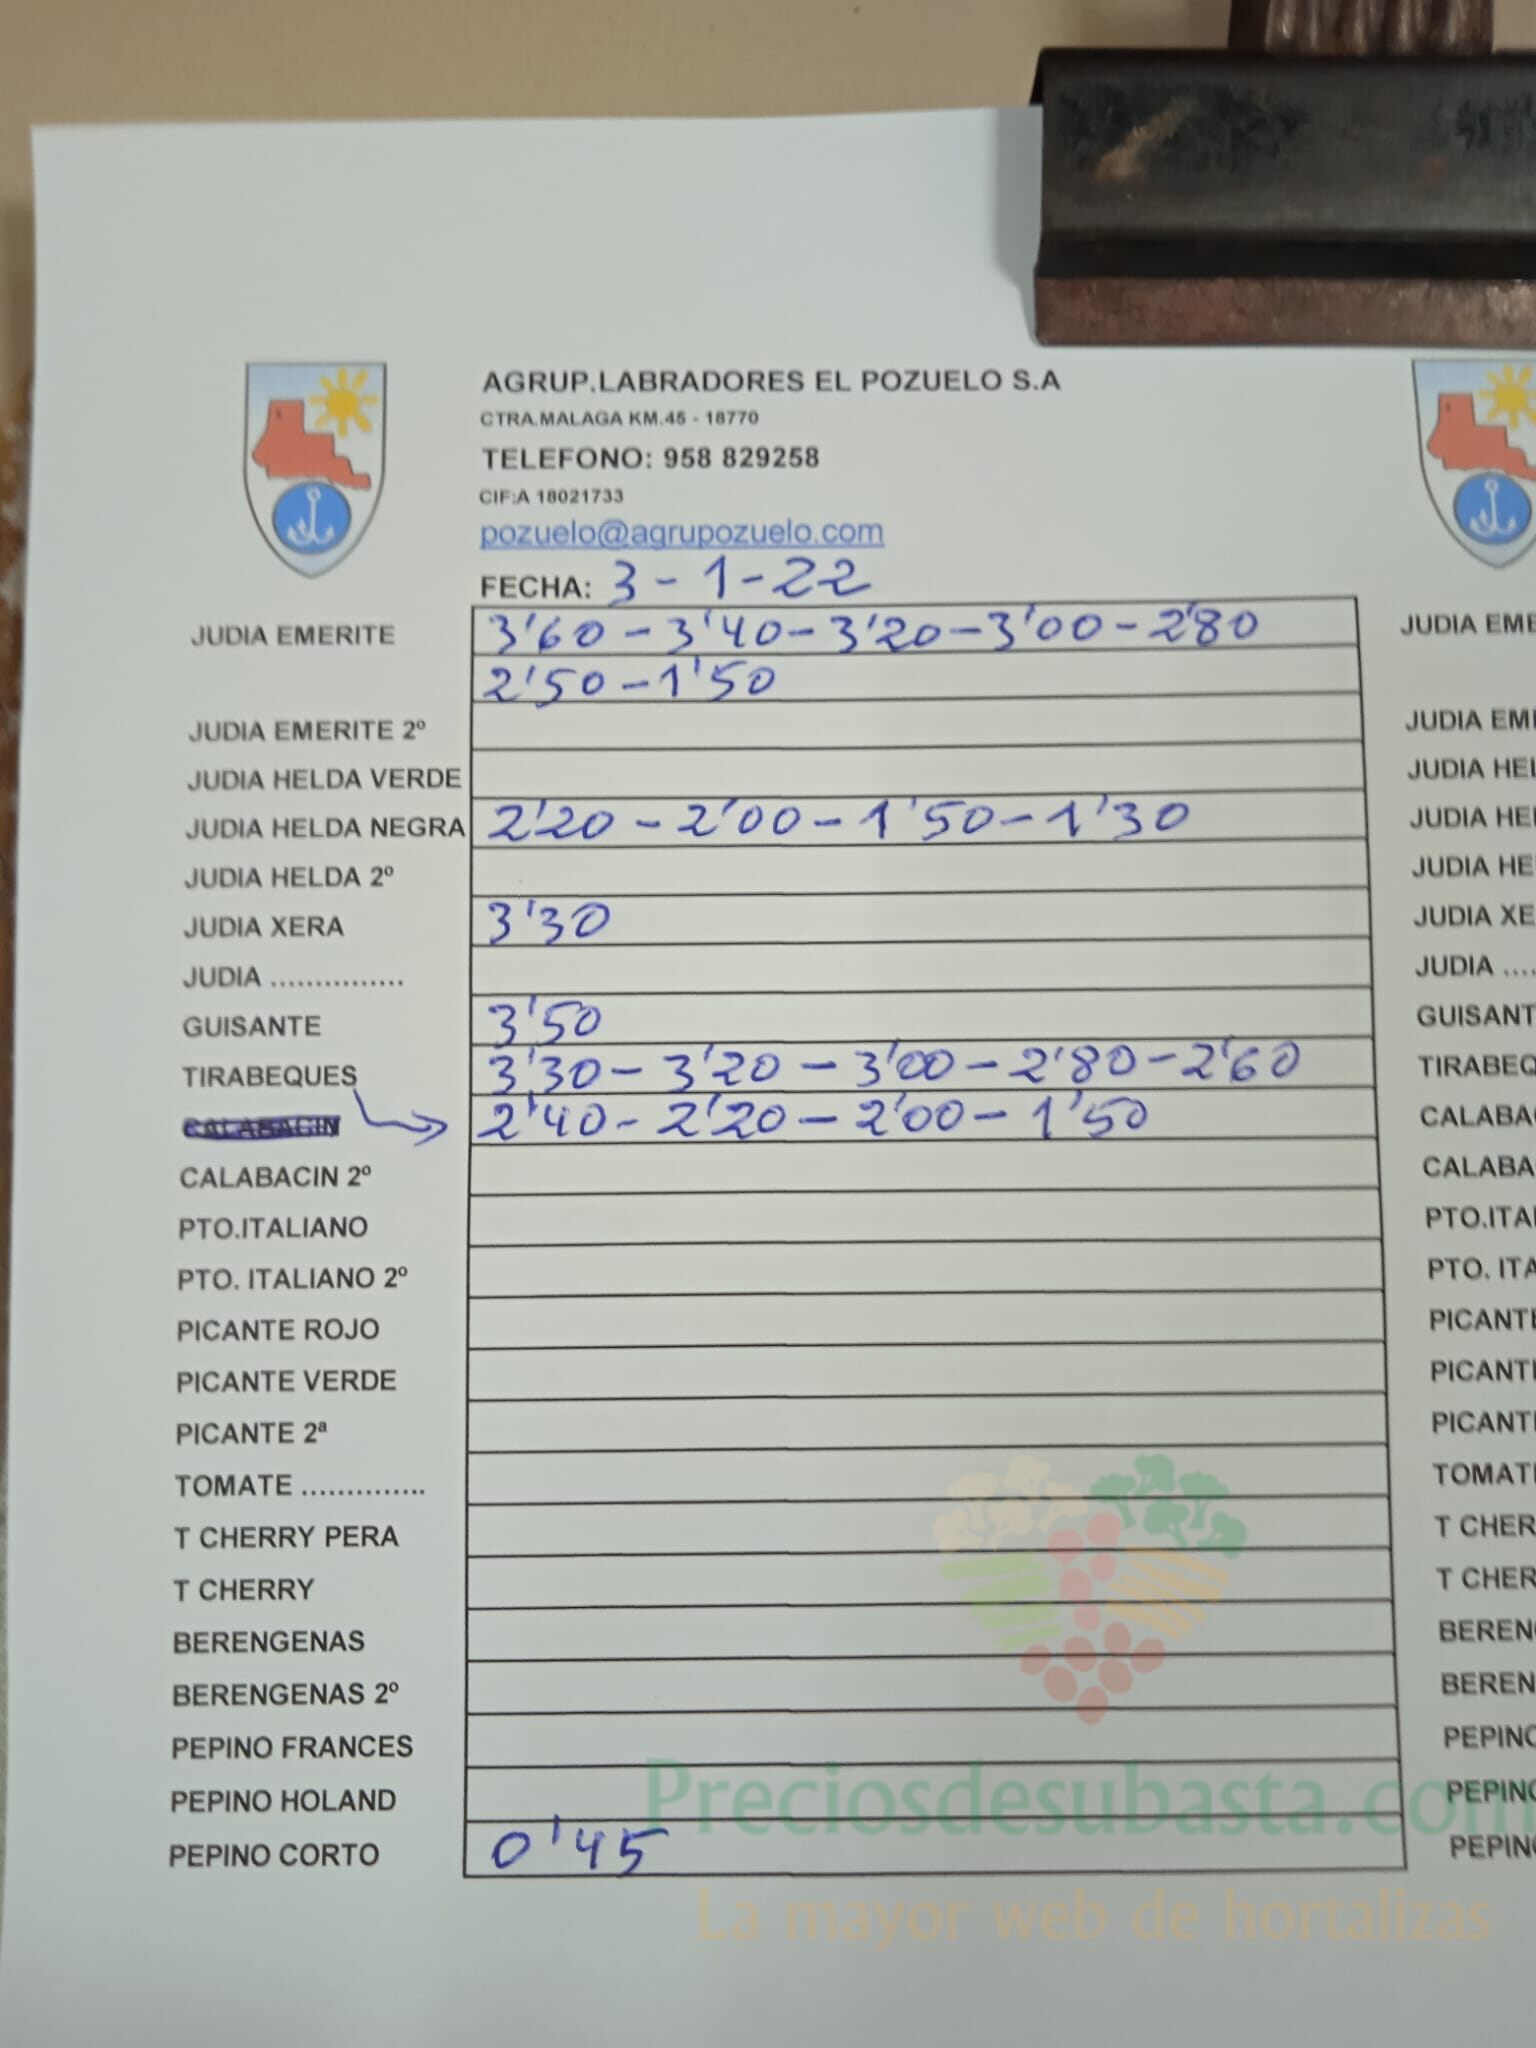 AGRUP.LABRADORES EL POZUELO S.A
CTRA.MALAGA KM.45 - 18770
TELEFONO: 958 829258
CIF:A 18021733
pozuelo@agrupozuelo.com
FECHA: 3-1-22
JUDIA EMERITE 3'60 - 3'40 - 3'20 - 3'00 - 2'80
2'50 - 1'50
JUDIA EMERITE 2º
JUDIA HELDA VERDE
JUDIA HELDA NEGRA 2'20 - 2'00 - 1'50 - 1'30
JUDIA HELDA 2º
JUDIA XERA 3'30
JUDIA ...............
GUISANTE 3'50
TIRABEQUES 3'30 - 3'20 - 3'00 - 2'80 - 2'60
CALABACIN 2'40 - 2'20 - 2'00 - 1'50
CALABACIN 2º
PTO.ITALIANO
PTO. ITALIANO 2º
PICANTE ROJO
PICANTE VERDE
PICANTE 2ª
TOMATE ..............
T CHERRY PERA
T CHERRY
BERENGENAS
BERENGENAS 2º
PEPINO FRANCES
PEPINO HOLAND
PEPINO CORTO 0'45
JUDIA EME
JUDIA EME
JUDIA HEL
JUDIA HE
JUDIA HE
JUDIA XE
JUDIA ....
GUISANT
TIRABEQ
CALABA
CALABA
PTO.ITA
PTO. ITA
PICANTE
PICANTE
PICANTE
TOMATE
T CHER
T CHER
BEREN
BEREN
PEPINO
PEPINO
PEPINO
Preciosdesubasta.com
La mayor web de hortalizas